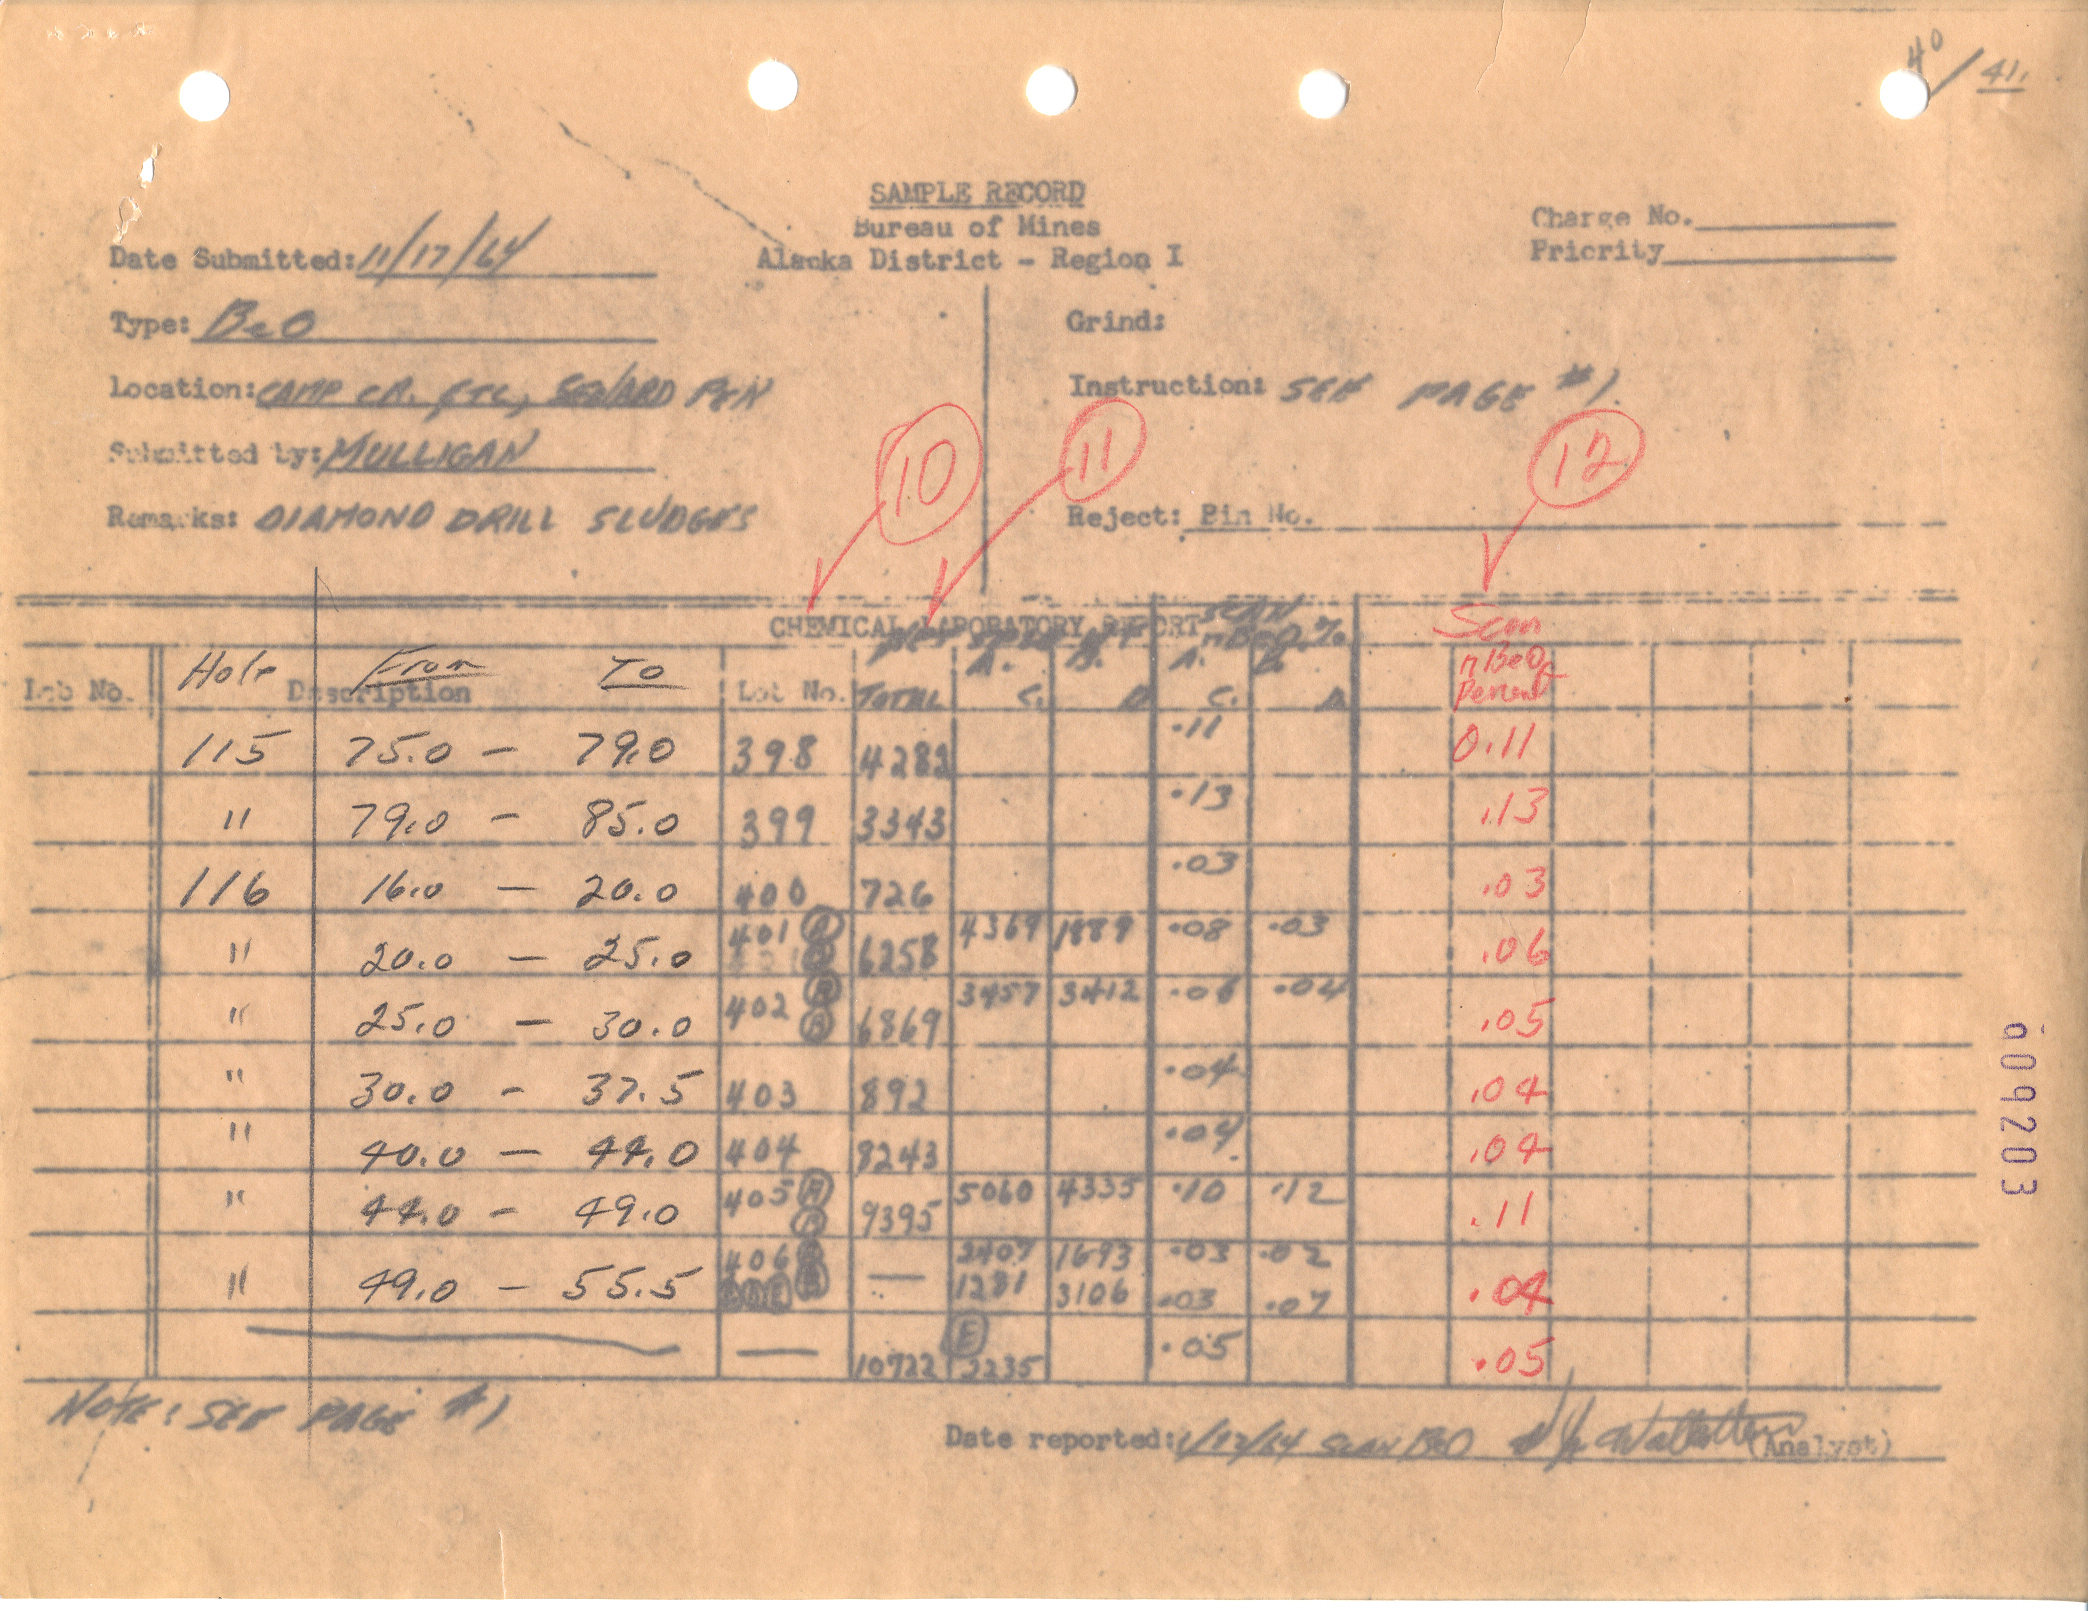 40 / 41.
SAMPLE RECORD
Bureau of Mines
Alaska District - Region I
Charge No.
Priority
Date Submitted: 11/17/64
Type: BeO
Grind:
Location: CAMP CR. ETC, SEWARD PEN
Instruction: SEE PAGE #1.
Submitted by: MULLIGAN
10 11 12
Remarks: DIAMOND DRILL SLUDGES
Reject: Bin No.
CHEMICAL LABORATORY REPORT SCAN
nBeO,% Scan
A. B. A. B. nBeO,
Lab No. Hole From To
Description Lot No. TOTAL C. D C. D. Percent
115 75.0 - 79.0 398 4283 .11 0.11
" 79.0 - 85.0 399 3343 .13 .13
116 16.0 - 20.0 400 726 .03 .03
" 20.0 - 25.0 401 A B 6258 4369 1889 .08 .03 .06
" 25.0 - 30.0 402 A B 6869 3457 3412 .06 .04 .05
" 30.0 - 37.5 403 892 .04 .04
" 40.0 - 44.0 404 8243 .04 .04
" 44.0 - 49.0 405 A B 9395 5060 4335 .10 .12 .11
" 49.0 - 55.5 406 A B — 2407 1693 .03 .02 .04
C D E 1281 3106 .03 .07
— 10722 E 2235 .05 .05
NOTE: SEE PAGE #1
Date reported: 1/12/64 SCAN BeO (Analyst)
609203